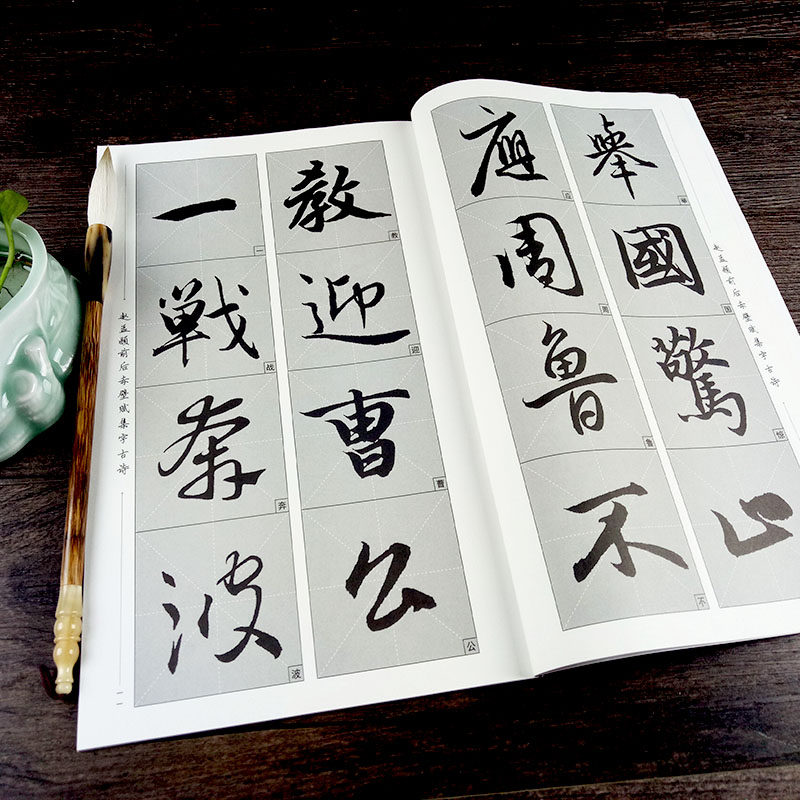 赵孟頫前后赤壁赋集字古诗
舉國驚心
举
国
惊
應周魯不
应
周
鲁
不
教迎曹公
教
迎
曹
公
一戰奔波
一
战
奔
波
赵孟頫前后赤壁赋集字古诗
一一